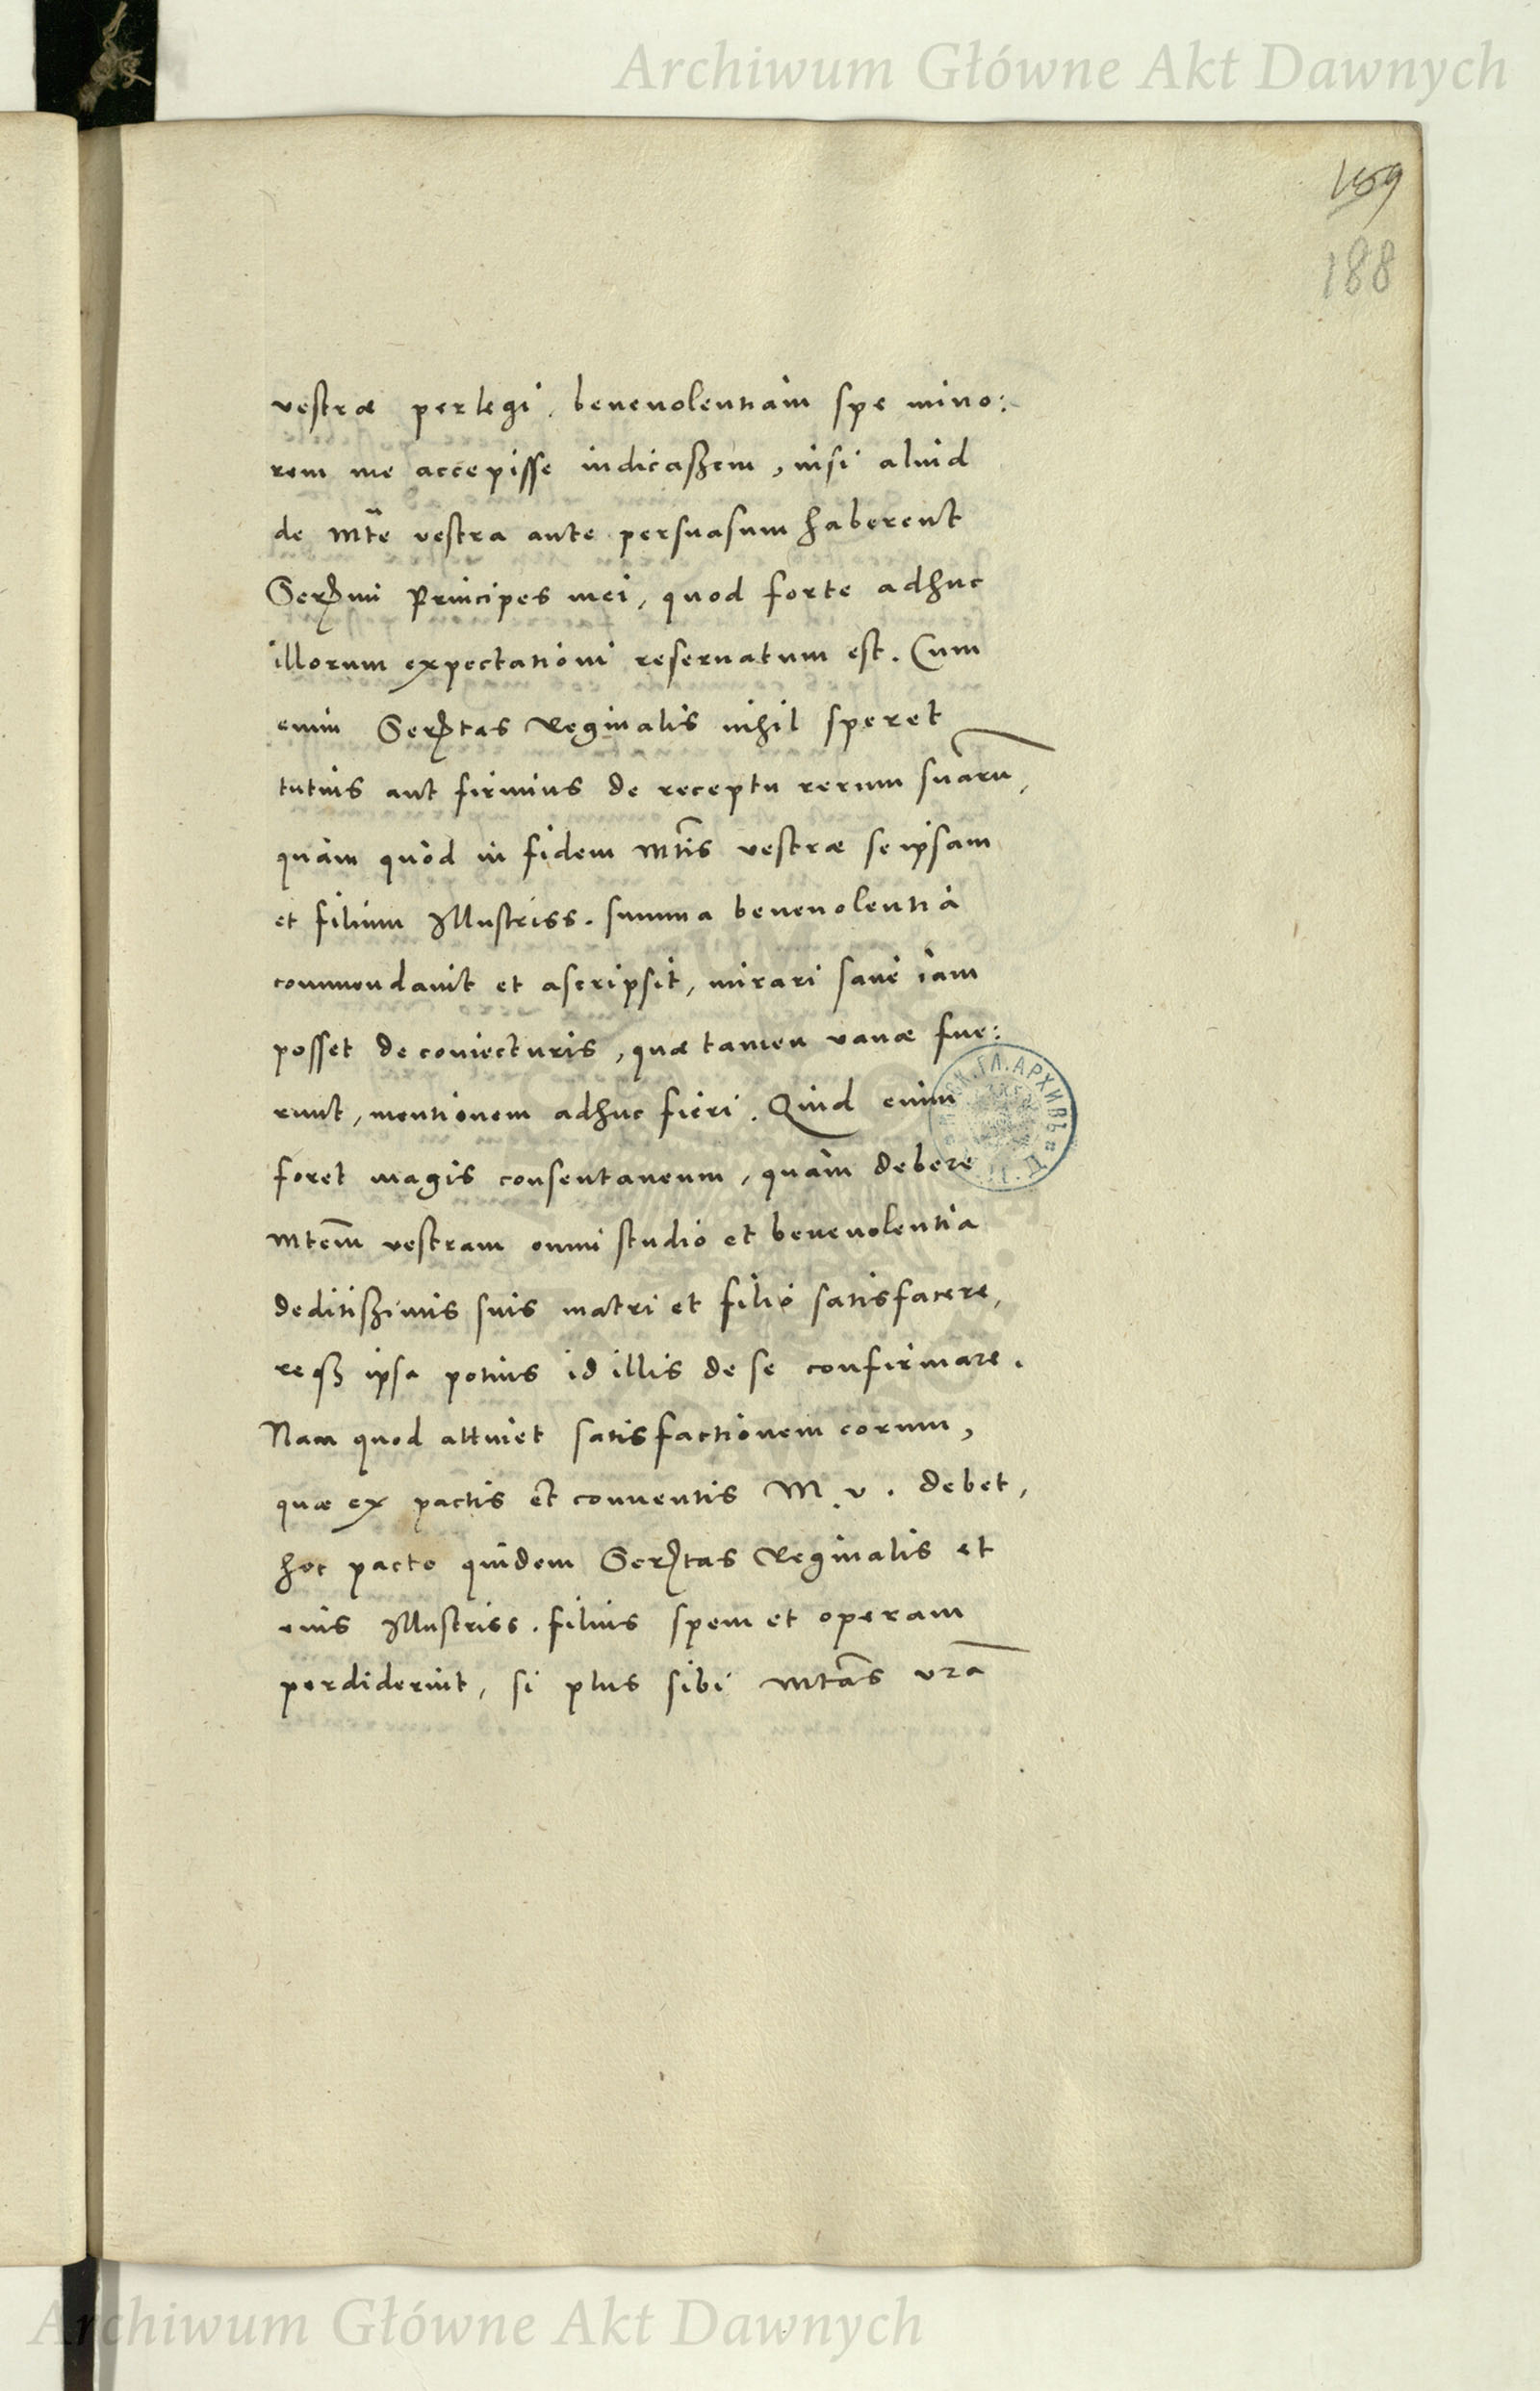 Archiwum Główne Akt Dawnych
159
188
vestræ perlegi, beneuolentiam spe mino:
rem me accepisse iudicaßem, nisi aliud
de Mte vestra ante persuasum haberent
Sermi Principes mei, quod forte adhuc
illorum expectationi reseruatum est. Cum
enim Sertas Reginalis nihil speret
tutius aut firmius de receptu rerum suarū,
quàm quòd in fidem Mtis vestræ seipsam
et filium Illustriss. summa beneuolentia
commendauit et ascripsit, mirari sanè iam
posset de coniecturis, quæ tamen vanæ fue:
runt, mentionem adhuc fieri. Quid enim
foret magis consentaneum, quàm debere
Mtem vestram omni studio et beneuolentia
deditißimis suis matri et filio satisfacere,
reqꝫ ipsa potius id illis de se confirmare.
Nam quod attinet satisfactionem eorum,
quæ ex pactis et conuentis M. v. debet,
hoc pacto quidem Sertas Reginalis et
eius Illustriss. filius spem et operam
perdiderint, si plus sibi Mtas vrā
Archiwum Główne Akt Dawnych